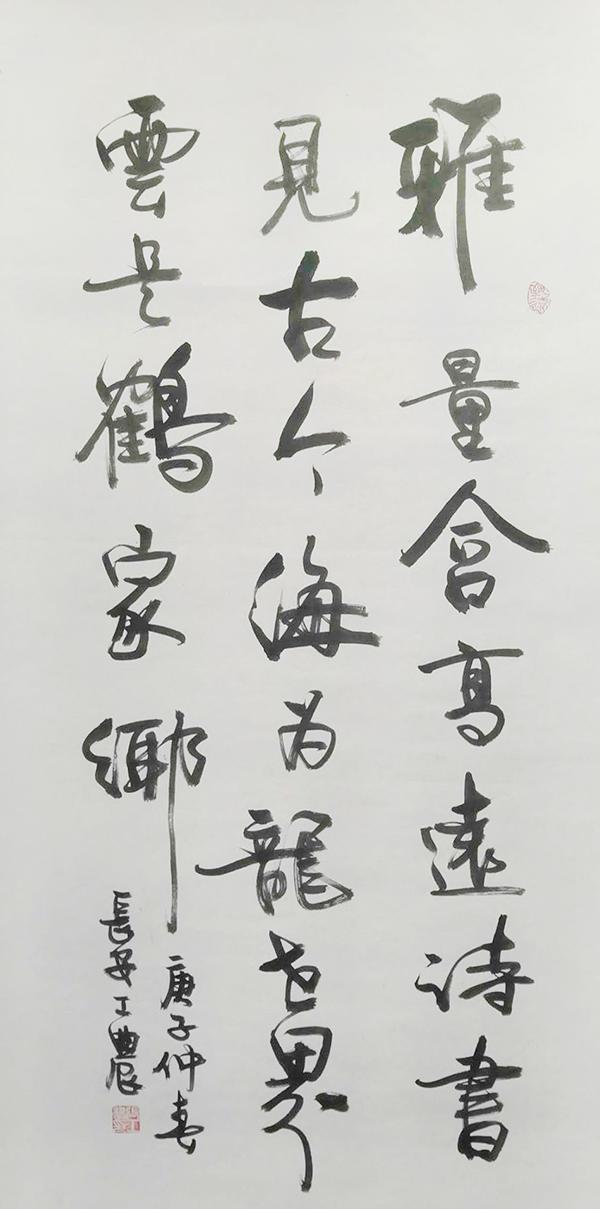 雅量含高遠詩書
見古今海为龍世界
雲是鶴家鄉
庚子仲春
長安工農